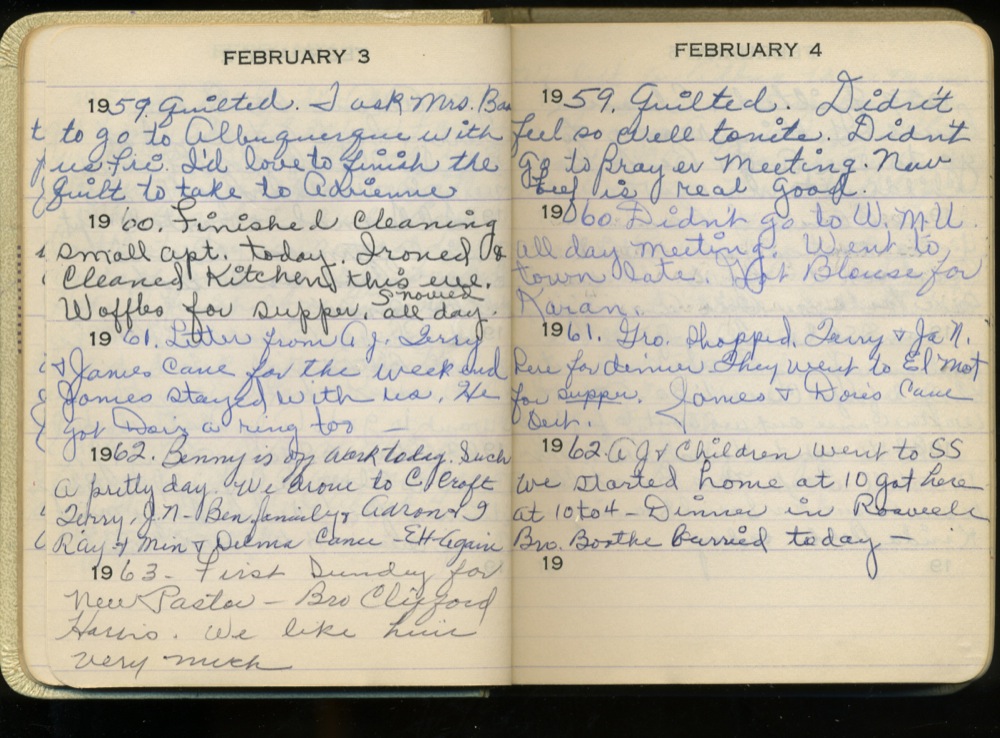 FEBRUARY 3
1959. Quilted. I ask Mrs. Bax
to go to Albuquerque with
us Fri. I'd love to finish the
quilt to take to Adrienne
1960. Finished Cleaning
small apt. today. Ironed &
Cleaned Kitchen this eve.
Waffles for supper. Snowed all day.
1961. Letter from A J. Terry
& James came for the weekend
James stayed with us. He
got Doris a ring too —
1962. Benny is off work today. Such
a pretty day. We drove to C. Croft
Terry, J.N- Ben, family & Aaron & I
Ray & Min & Delma came - EH-Again
1963 - First Sunday for
New Pastor - Bro Clifford
Harris. We like him
very much
FEBRUARY 4
1959. Quilted. Didn't
feel so well tonite. Didn't
go to Prayer Meeting. New
is real good.
1960 Didn't go to W.M.U.
all day meeting. Went to
town late. Got Blouse for
Karan.
1961. Gro. Shopped. Terry & Ja N.
here for dinner They went to El Mot
for supper. James & Doris Came
1962. A J & Children went to SS
we started home at 10 got here
at 10 to 4 - Dinner in Roswell
Bro. Boothe Burried today —
19